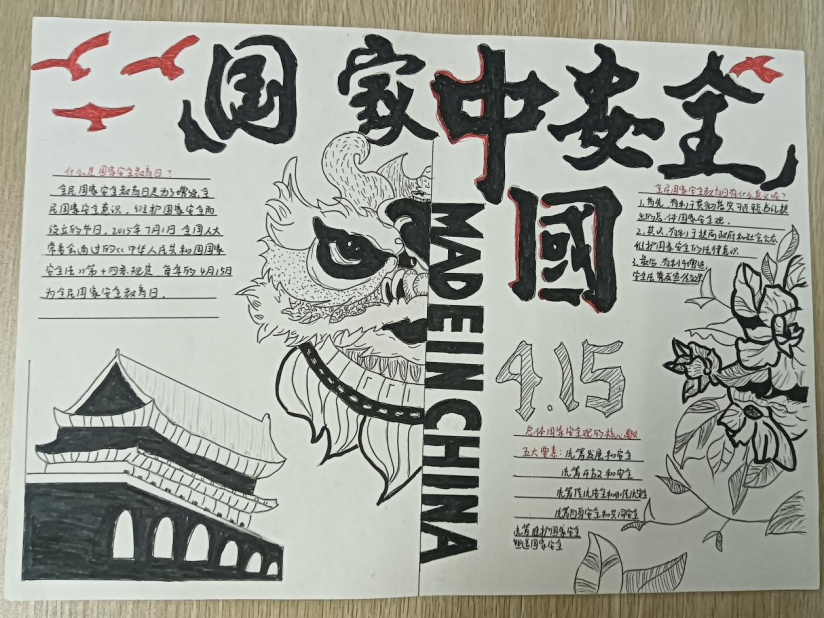 国家安全
中國
MADE IN CHINA
4.15
什么是国家安全教育日？
全民国家安全教育日是为了增强全
民国家安全意识，维护国家安全而
设立的节日。2015年7月1日，全国人大
常委会通过的《中华人民共和国国家
安全法》第十四条规定，每年的4月15日
为全民国家安全教育日。
全民国家安全教育日有什么意义呢？
1.首先，有利于贯彻落实
出的总体国家安全观。
2.其次，有利于提高政府和社会公众
维护国家安全的法律意识。
3.最后，有利于增强
总体国家安全观的核心要义
五大要素：统筹发展和安全
统筹开放和安全
统筹传统安全和非传统安全
统筹内国安全和共同安全
统筹维护国家安全
塑造国家安全